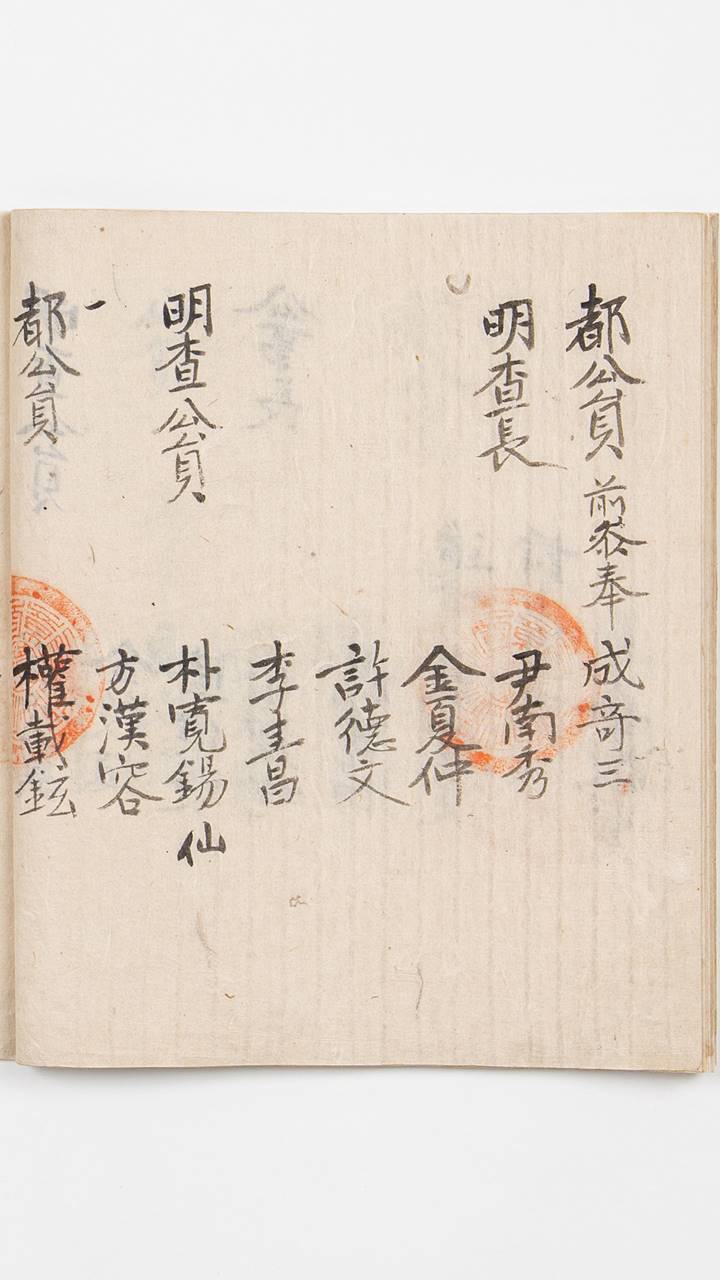 都公員 前參奉 成奇三
明査長 尹南秀
金夏仲
許德文
李圭昌
明査公員 朴寬錫 仙
方漢容
都公員 權載鉉